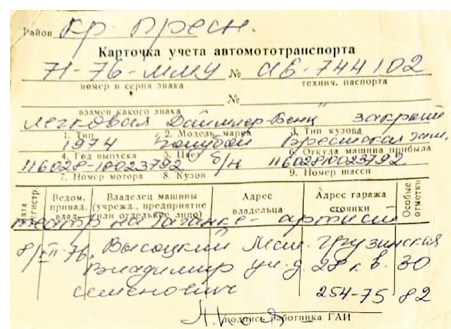 Район Кр. Пресн.
Карточка учета автомототранспорта
71-76-ММУ № АБ-744102
номер и серия знака технич. паспорта
№
взамен какого знака
легковая Даймлер-Бенц закрытый
1. Тип 2. Модель, марка 3. Тип кузова
1974 голубой Брестская там.
4. Год выпуска 5. Цвет 6. Откуда машина прибыла
116028-10023792 б/н 11602810023792
7. Номер мотора 8. Кузов 9. Номер шасси
Дата регистр. Ведом. принад. влад. Владелец машины (учрежд., предприятие или отдельное лицо) Адрес владельца Адрес гаража стоянки Особые отметки
театр на Таганке - артист
8/XII-76. Высоцкий М. Грузинская
Владимир ул. д. 28 к. в. 30
Семенович 254-75 82
подпись работника ГАИ